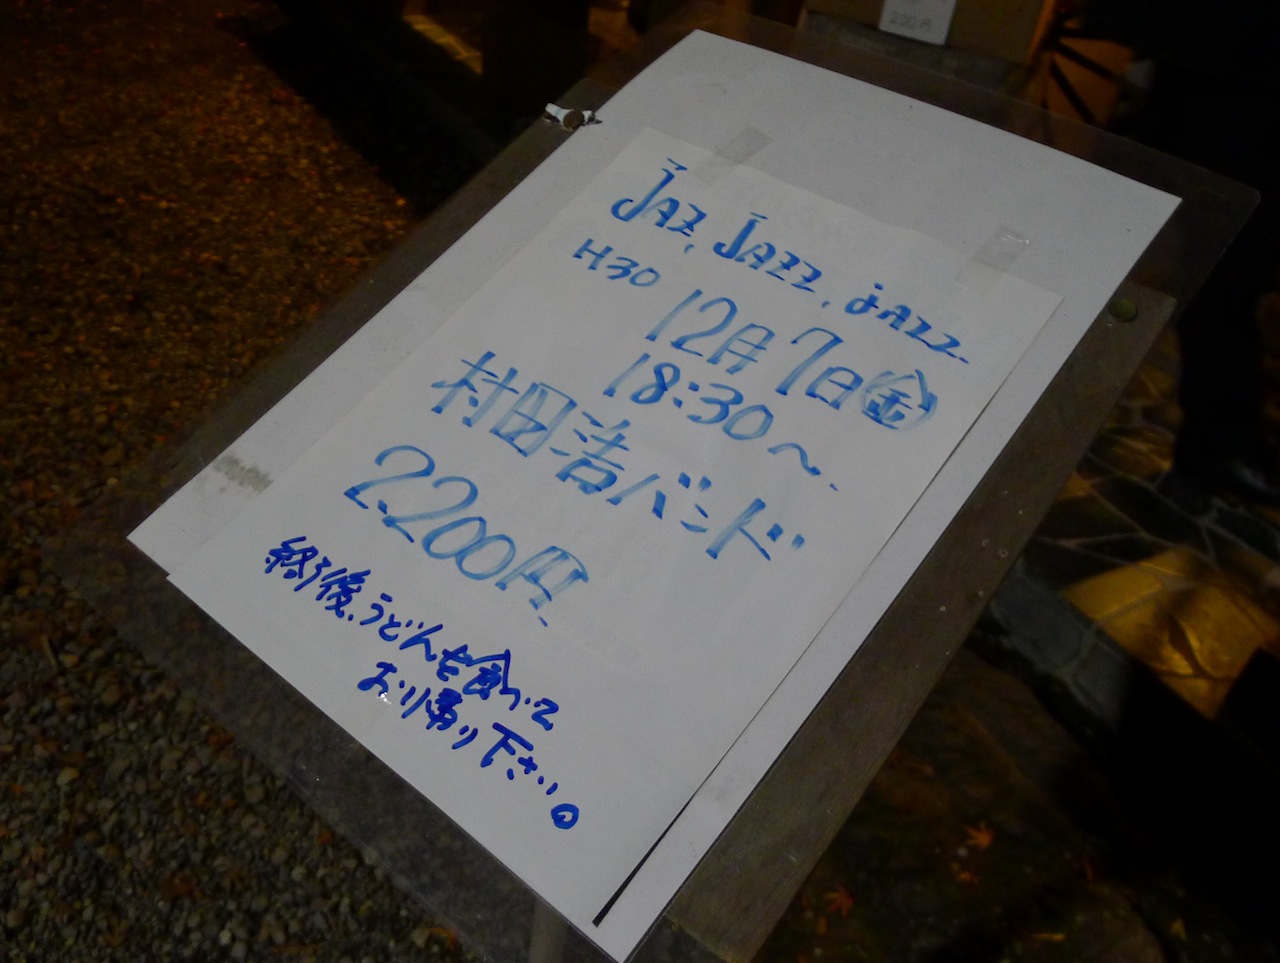 200円
JAZ, JAZZ, jAZZ.
H30
12月7日㊎
18:30〜
村田浩バンド
2,200円
終了後、うどんを食べて
お帰り下さい。